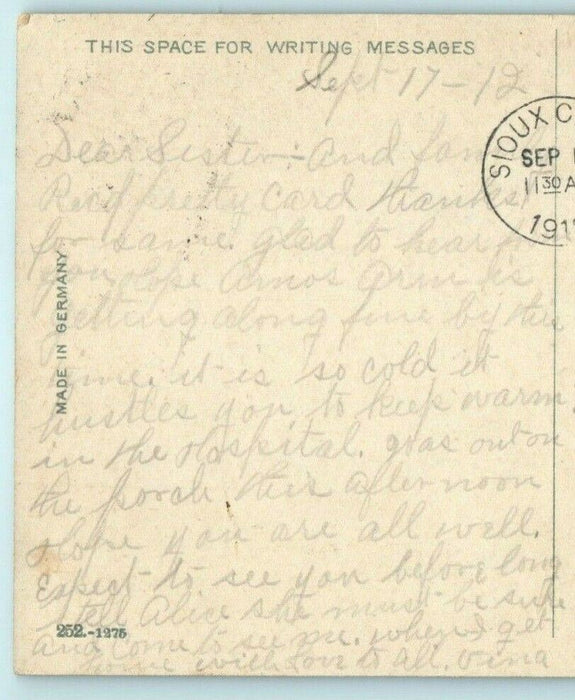 THIS SPACE FOR WRITING MESSAGES
Sept 17-12
Dear Sister:- and family
Recd pretty Card thanks
for same. glad to hear
you hope Amos Arm is
getting along fine by this
time. it is so cold it
hustles you to keep warm
in the Hospital. was out on
the porch this afternoon
Hope you are all well.
Expect to see you before long
tell Alice she must be sure
and come to see me. when I get
home with love to all.
SIOUX C
SEP 1
11 30 A
191
MADE IN GERMANY
252.-1275